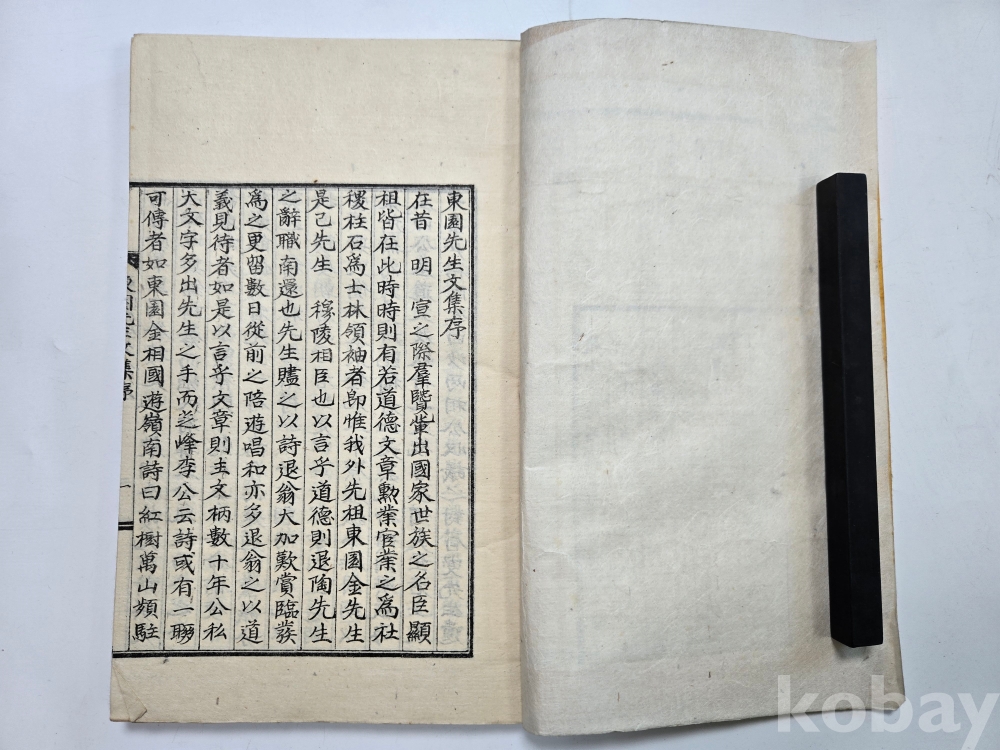 東園先生文集序
在昔 公明 宣之際羣賢蔚出國家世族之名臣顯
祖皆在此時時則有若道德文章勳業官業之爲社
稷柱石爲士林領袖者卽惟我外先祖東園金先生
是已先生 穆陵相臣也以言乎道德則退陶先生
之辭職南還也先生贐之以詩退翁大加歎賞臨發
爲之更留數日從前之陪遊唱和亦多退翁之以道
義見待者如是以言乎文章則主文柄數十年公私
大文字多出先生之手而芝峰李公云詩或有一聯
可傳者如東園金相國遊嶺南詩曰紅樹萬山頻駐
東園先生文集序
一
kobay